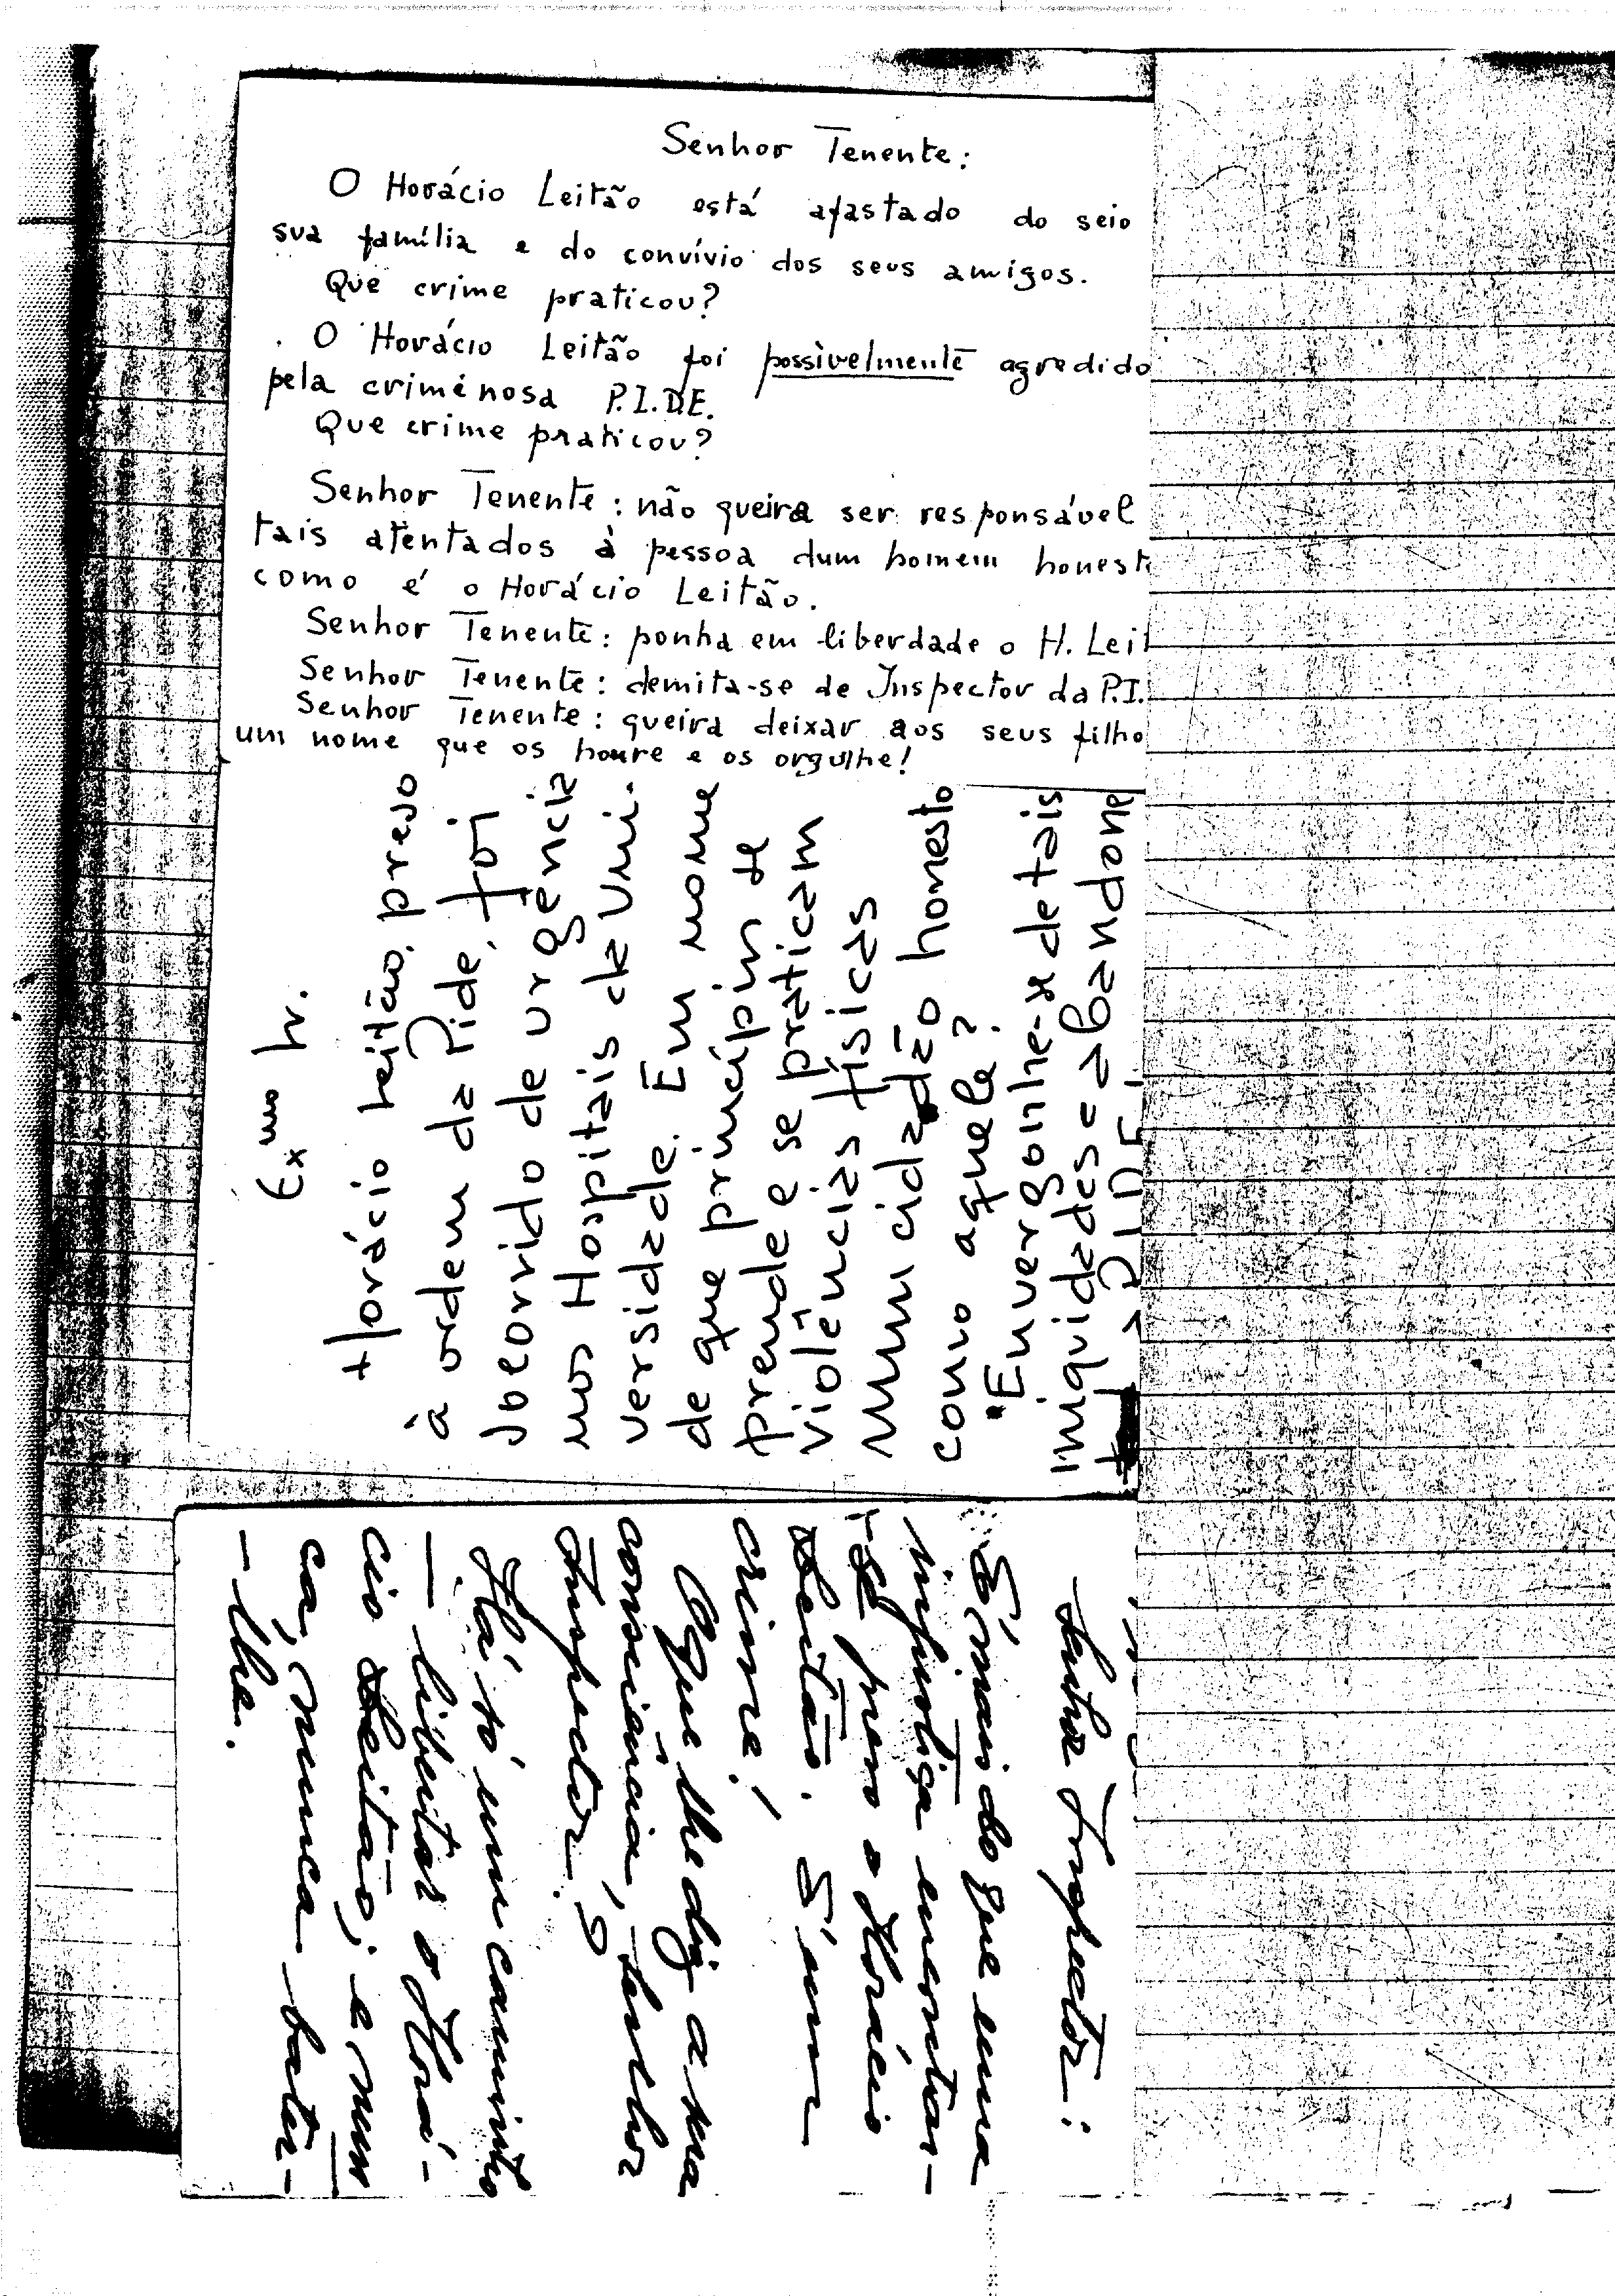 Senhor Tenente:
O Horácio Leitão está afastado do seio
sua família e do convívio dos seus amigos.
Que crime praticou?
O Horácio Leitão foi possìvelmente agredido
pela criminosa P.I.D.E.
Que crime praticou?
Senhor Tenente: não queira ser responsável
tais atentados à pessoa dum homem honest
como é o Horácio Leitão.
Senhor Tenente: ponha em liberdade o H. Leit
Senhor Tenente: demita-se de Inspector da P.I.
Senhor Tenente: queira deixar aos seus filho
um nome que os honre e os orgulhe!
Exmo Sr.
Horácio Leitão, preso
à ordem da Pide, foi
socorrido de urgência
nos Hospitais da Uni-
versidade. Em nome
de que princípios se
prende e se praticam
violências físicas
num cidadão honesto
como aquele?
Envergonhe-se de tais
iniquidades e abandone
a PIDE!
Senhor Inspector:
É mais do que uma
injustiça encontrar-
-se preso o Horácio
Leitão. É um
crime!
Que lhe diz a sua
consciência, senhor
Inspector?
Há só um caminho
— libertar o Horá-
cio Leitão; e nun
ca, nunca bater-
-lhe.